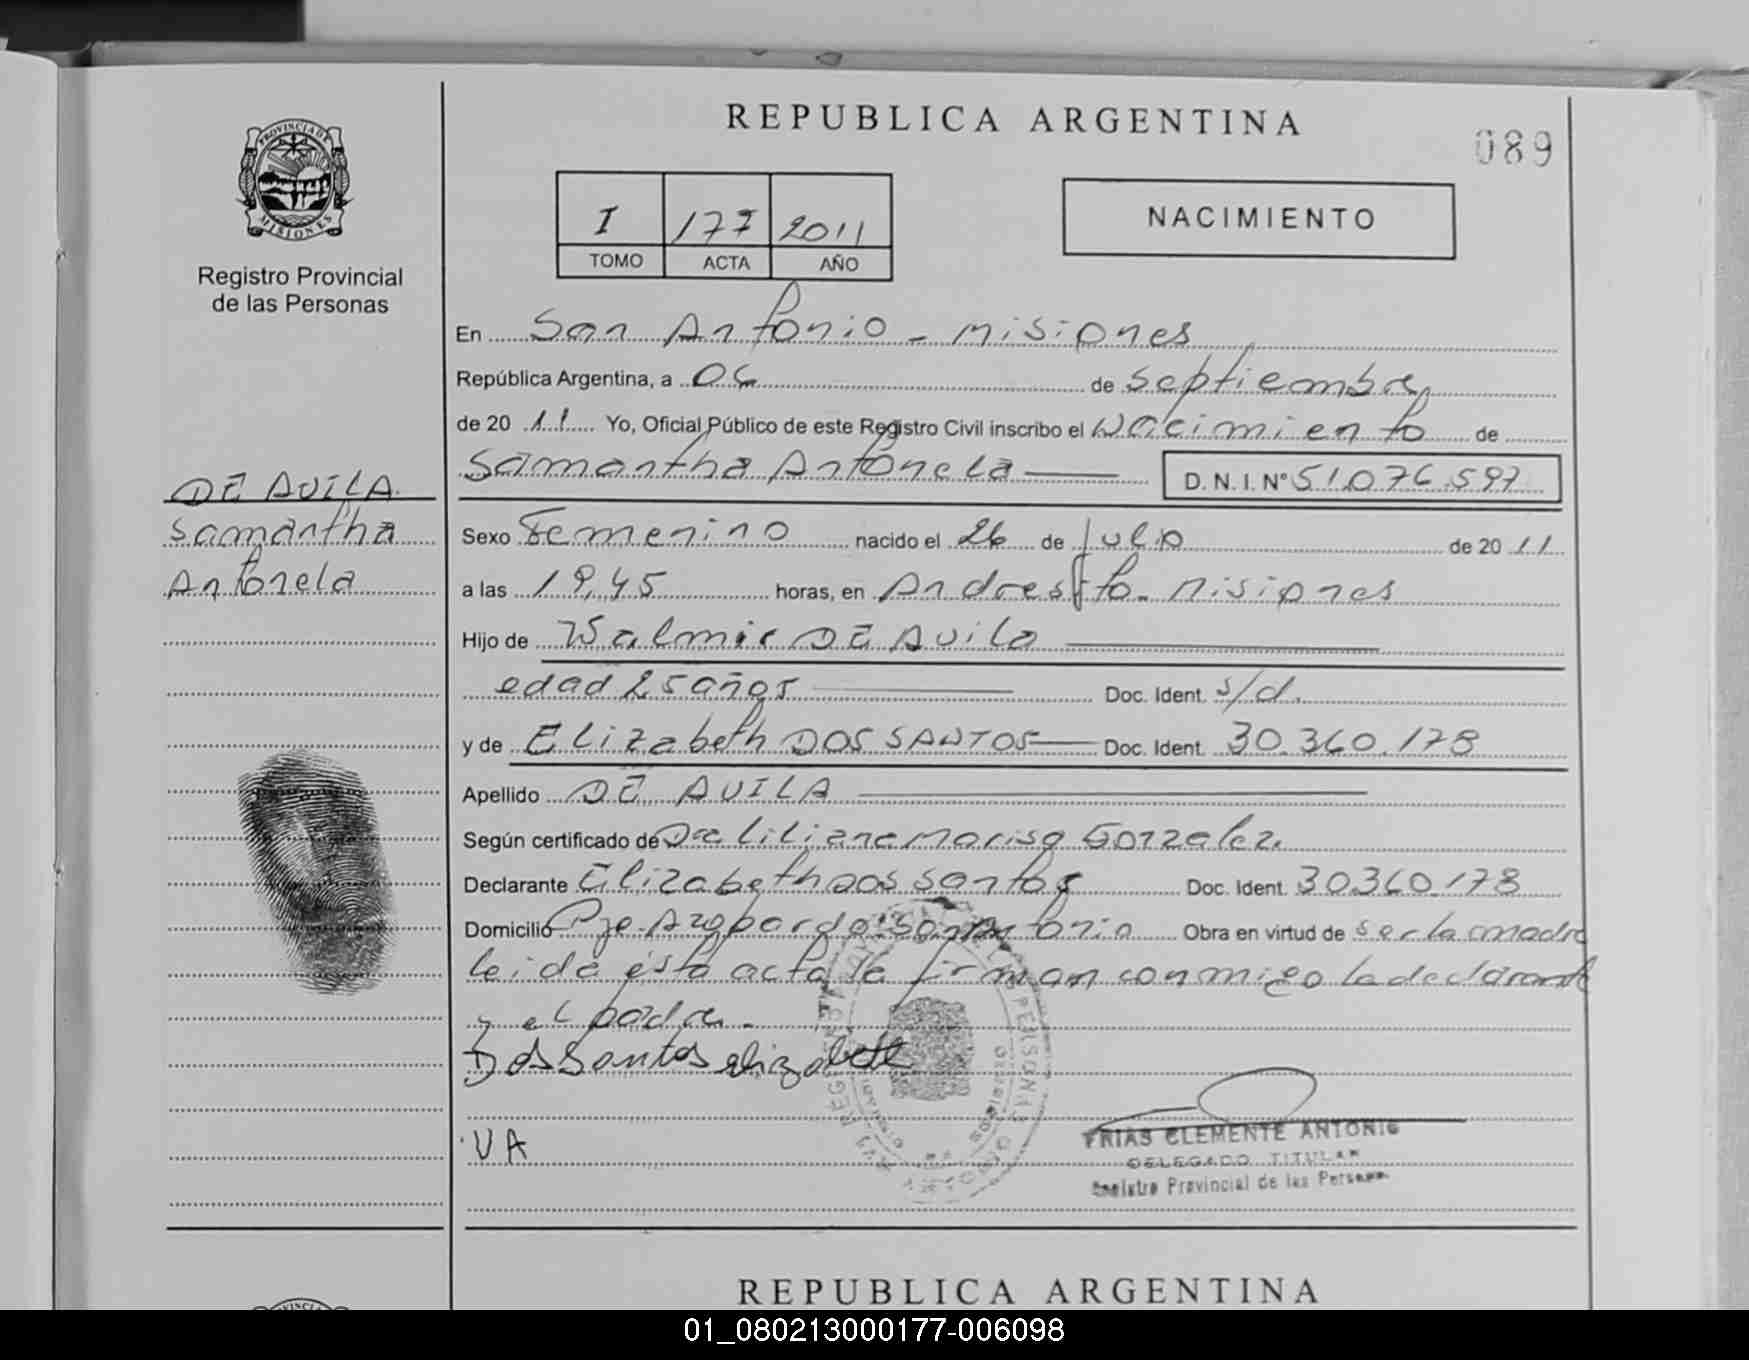 REPUBLICA ARGENTINA
089
PROVINCIA DE
MISIONES
Registro Provincial
de las Personas
I 177 2011
TOMO ACTA AÑO
NACIMIENTO
En San Antonio - Misiones
República Argentina, a 06 de Septiembre
de 2011 Yo, Oficial Público de este Registro Civil inscribo el Nacimiento de
Samantha Antonela D.N.I. N° 51.076.597
DE AVILA
Samantha
Antonela
Sexo Femenino nacido el 26 de Julio de 2011
a las 19,45 horas, en Andresito - Misiones
Hijo de Walmir DE AVILA
edad 25 años Doc. Ident. s/d.
y de Elizabeth DOS SANTOS Doc. Ident. 30.360.178
Apellido DE AVILA
Según certificado de Dra Liliana Marisa Gonzalez.
Declarante Elizabeth dos santos Doc. Ident. 30360.178
Domicilio Pje Azopardo San Antonio Obra en virtud de ser la madre
leida ésta acta la firman conmigo la declarante
y el padre.
Dos Santos elizabeth
VA
FRIAS CLEMENTE ANTONIO
DELEGADO TITULAR
Registro Provincial de las Personas
REPUBLICA ARGENTINA
01_080213000177-006098